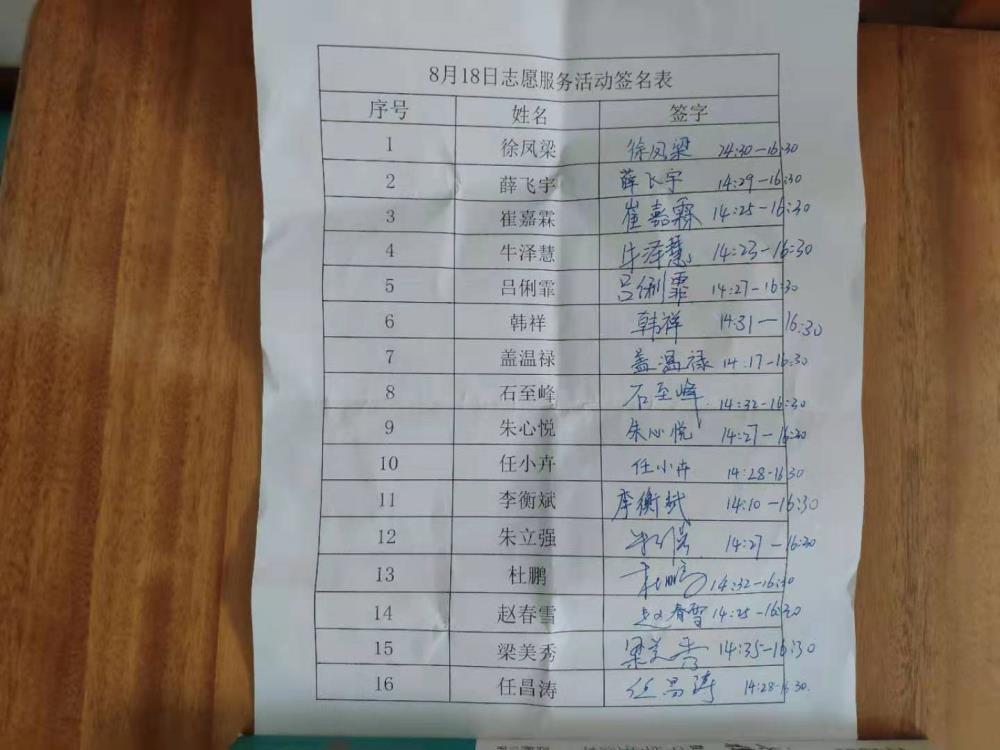 8月18日志愿服务活动签名表
序号 姓名 签字
1 徐凤梁 徐凤梁 24:30-16:30
2 薛飞宇 薛飞宇 14:29-16:30
3 崔嘉霖 崔嘉霖 14:25-16:30
4 牛泽慧 牛泽慧 14:23-16:30
5 吕俐霏 吕俐霏 14:27-16:30
6 韩祥 韩祥 14:31-16:30
7 盖温禄 盖温禄 14:17-16:30
8 石至峰 石至峰 14:32-16:30
9 朱心悦 朱心悦 14:27-16:30
10 任小卉 任小卉 14:28-16:30
11 李衡斌 李衡斌 14:10-16:30
12 朱立强 朱立强 14:27-16:30
13 杜鹏 杜鹏 14:32-16:30
14 赵春雪 赵春雪 14:25-16:30
15 梁美秀 梁美秀 14:35-16:30
16 任昌涛 任昌涛 14:28-16:30